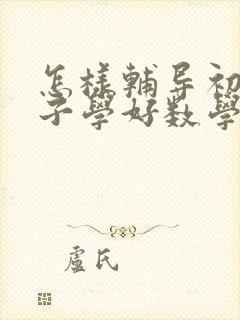 怎樣輔导初
子學好数學
盧氏